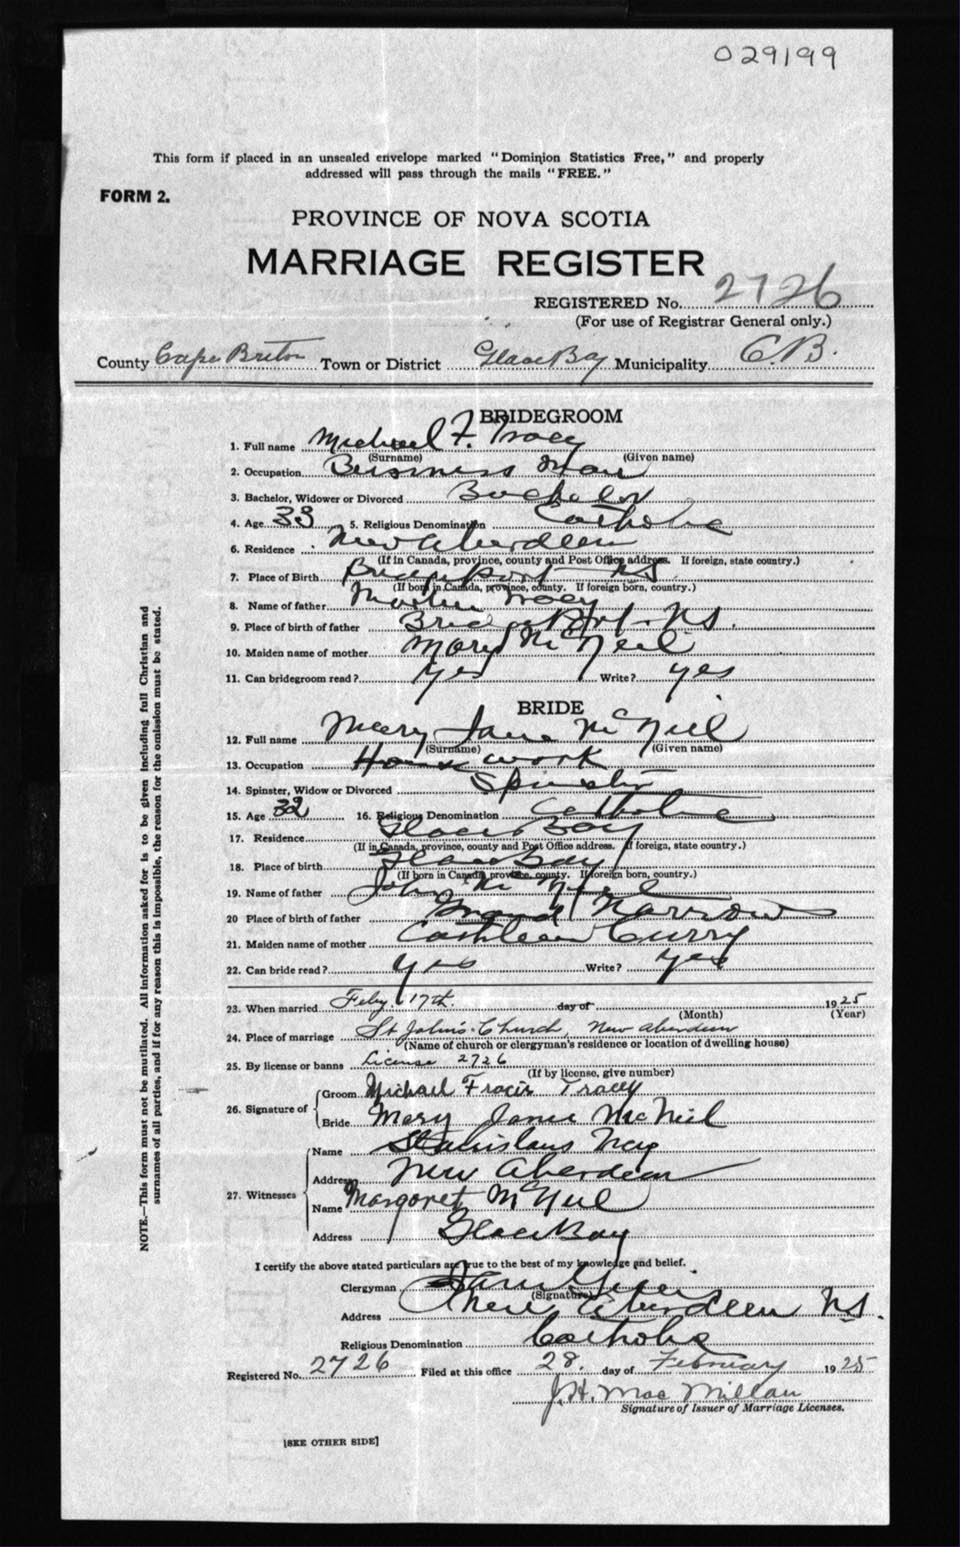 029199
This form if placed in an unsealed envelope marked "Dominion Statistics Free," and properly
addressed will pass through the mails "FREE."
FORM 2.
PROVINCE OF NOVA SCOTIA
MARRIAGE REGISTER
REGISTERED No. 2726
(For use of Registrar General only.)
County Cape Breton Town or District Glace Bay Municipality C.B.
BRIDEGROOM
1. Full name Michael F. Tracey
(Surname) (Given name)
2. Occupation Business Man
3. Bachelor, Widower or Divorced Bachelor
4. Age 33 5. Religious Denomination Catholic
6. Residence New Aberdeen
(If in Canada, province, county and Post Office address. If foreign, state country.)
7. Place of Birth Bridgeport NS
(If born in Canada, province, county. If foreign born, country.)
8. Name of father Tracey
9. Place of birth of father Bridgeport. NS.
10. Maiden name of mother Mary McNeil
11. Can bridegroom read? Yes Write? yes
BRIDE
12. Full name Mary Jane McNeil
(Surname) (Given name)
13. Occupation House work
14. Spinster, Widow or Divorced Spinster
15. Age 32 16. Religious Denomination Catholic
17. Residence Glace Bay
(If in Canada, province, county and Post Office address. If foreign, state country.)
18. Place of birth Glace Bay
(If born in Canada, province, county. If foreign born, country.)
19. Name of father John McNeil
20 Place of birth of father Grand Narrows
21. Maiden name of mother Cathleen Curry
22. Can bride read? yes Write? yes
23. When married Feby. 17th. day of 1925
(Month) (Year)
24. Place of marriage St John's Church, New Aberdeen
(Name of church or clergyman's residence or location of dwelling house)
25. By license or banns License 2726
(If by license, give number)
26. Signature of Groom Michael Fracis Tracey
Bride Mary Janie McNeil
27. Witnesses Name Stanislaus
Address New Aberdeen
Name Margaret McNeil
Address Glace Bay
I certify the above stated particulars are true to the best of my knowledge and belief.
Clergyman
(Signature)
Address New Aberdeen NS.
Religious Denomination Catholic
Registered No. 2726 Filed at this office 28. day of February 1925
J.H. MacMillan
Signature of Issuer of Marriage Licenses.
[SEE OTHER SIDE]
NOTE.—This form must not be mutilated. All information asked for is to be given including full Christian and
surnames of all parties, and if for any reason this is impossible, the reason for the omission must be stated.